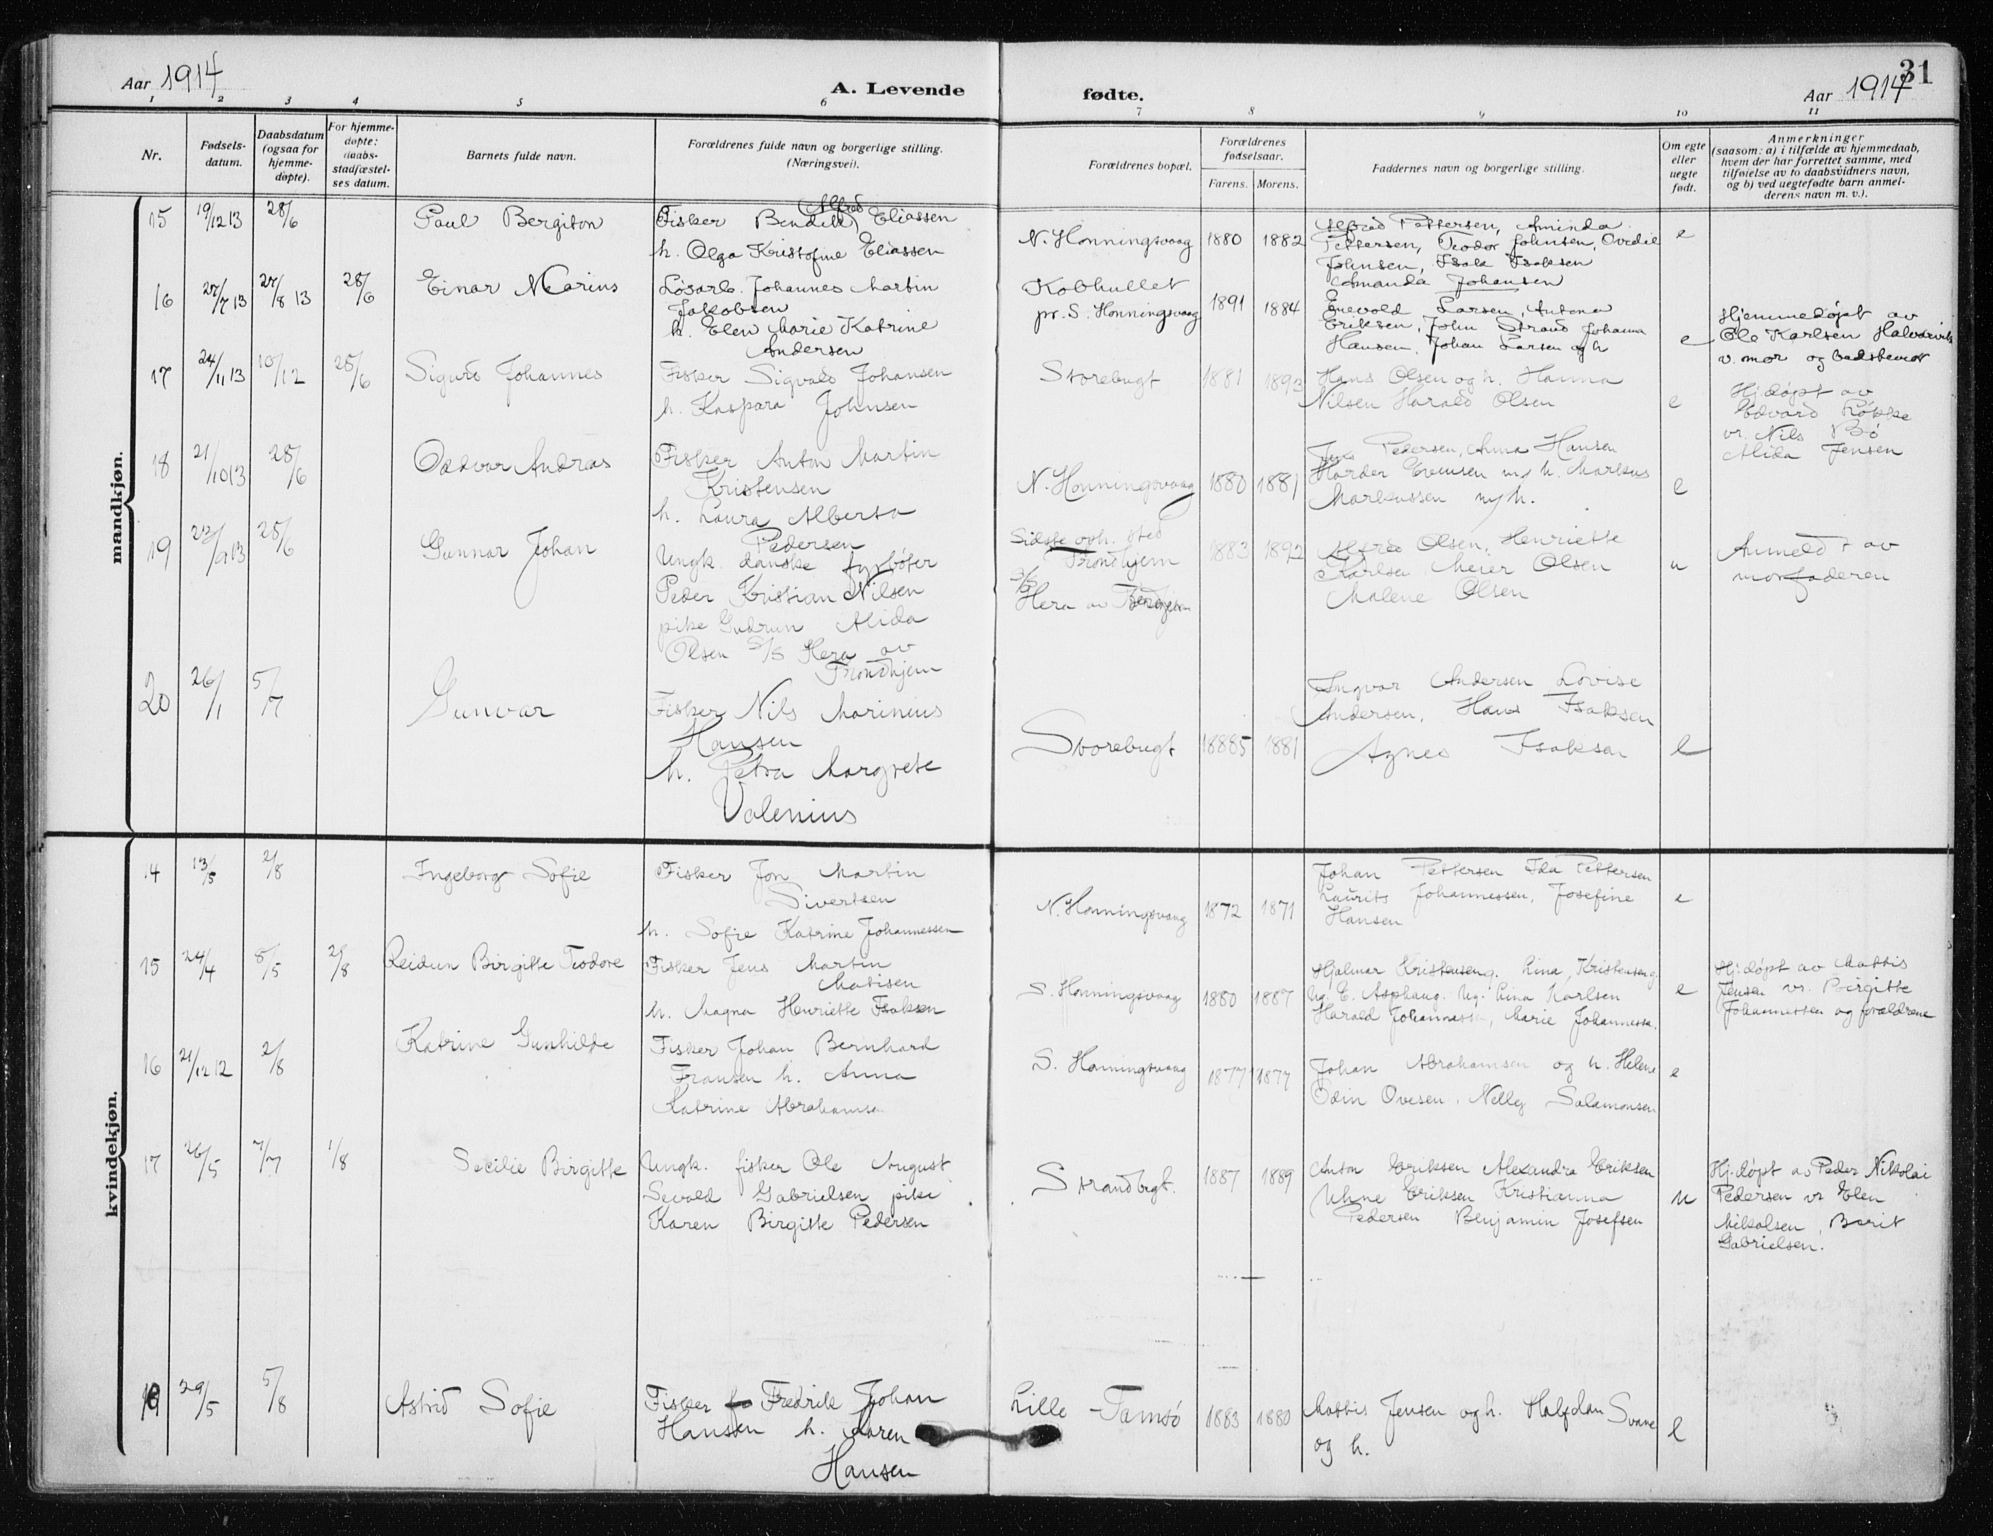 Aar 1914 A. Levende fødte. Aar 1914 31
1 2 3 4 5 6 7 8 9 10 11
Nr. Fødsels-datum. Daabsdatum (ogsaa for hjemme-døpte). For hjemme-døpte: daabs-stadfæstel-ses datum. Barnets fulde navn. Forældrenes fulde navn og borgerlige stilling. (Næringsvei). Forældrenes bopæl. Forældrenes fødselsaar. Farens. Morens. Faddernes navn og borgerlige stilling. Om egte eller uegte født. Anmerkninger (saasom: a) i tilfælde av hjemmedaab, hvem der har forrettet samme, med tilføielse av to daabsvidners navn, og b) ved uegtefødte barn anmel-derens navn m. v.).
mandkjøn.
15 19/12 13 28/6 Paul Bergiton
Fisker Bendik (Alfred) Eliassen
h. Olga Kristofine Eliassen
N. Honningsvaag 1880 1882
Alfred Pettersen, Aminda
Pettersen, Teodor Johnsen, Ovedie
Johnsen, Isak Isaksen
Amanda Johansen
e
16 27/7 13 27/8 13 28/6 Einar Marius
Løsarb. Johannes Martin
Jakobsen
h. Elen Marie Katrine
Andersen
Kobhullet
pr. S. Honningsvaag 1891 1884
Enevold Larsen, Antona
Eriksen, John Strand Johanna
Hansen, Johan Larsen og h
e
Hjemmedøpt av
Ole Karlsen Halvarvik
v. mor og bedstemor
17 24/11 13 10/12 28/6 Sigurd Johannes
Fisker Sigvald Johansen
h. Kaspara Johnsen
Storebugt 1881 1893
Hans Olsen og h. Hanna
Nilsen Harald Olsen
e
Hj.døpt av
Edvard Røkke
vr. Nils Bø
Alida Jensen
18 21/10 13 28/6 Oddvar Andras
Fisker Anton Martin
Kristensen
h. Laura Alberta
Pedersen
N. Honningsvaag 1880 1881
Pedersen, Anna Hansen
Evensen m/ h. Markus
Markussen m/ h.
e
19 22/9 13 28/6 Gunnar Johan
Ungk. danske fyrbøter
Peder Kristian Nilsen
pike Gudrun Alida
Olsen S/S Hera av
Trondhjem
Sidste oph. sted
Trondhjem
S/S
Hera av Trondhjem
1883 1892
Alfred Olsen, Henriette
Karlsen Meier Olsen
Malene Olsen
u
Anmeldt av
morfaderen
20 26/1 5/7 Gunvar
Fisker Nils Marineus
Hansen
h. Petra Margrete
Valenius
Storebugt 18885 1881
Ingvar Andersen Lovise
Andersen, Hans Isaksen
Agnes Isaksen
e
kvindekjøn.
14 13/5 2/8 Ingeborg Sofie
Fisker Jon Martin
Sivertsen
h. Sofie Katrine Johannessen
N. Honningsvaag 1872 1871
Johan Pettersen Ida Pettersen
Laurits Johannessen, Josefine
Hansen
e
15 24/4 5/5 2/8 Reidun Birgitte Teodore
Fisker Jens Martin
Matisen
h. Magna Henriette Isaksen
S. Honningsvaag 1880 1887
Hjalmar Kristensen g. Lina Kristensen g.
Ug. E. Asphaug. Ug. Lina Karlsen
Harald Johannessen, Marie Johannessen.
e
Hj.døpt av Mattis
Jensen vr. Birgitte
Johannessen og forældrene
16 21/12 12 2/8 Katrine Gunhilde
Fisker Johan Bernhard
Fransen h. Anna
Katrine Abrahamsen
S. Honningsvaag 1877 1877
Johan Abrahamsen og h. Helene
Odin Ovesen. Nelly Salamonsen
e
17 26/5 7/7 1/8 Secilie Birgitte
Ungk. fisker Ole August
Sevald Gabrielsen pike
Karen Birgitte Pedersen
Strandbugt. 1887 1889
Anton Eriksen Alexandra Eriksen
Eriksen Kristianna
Pedersen Benjamin Josefsen
u
Hj.døpt av Peder Nikolai
Pedersen vr Elen
Mikalsen, Berit
Gabrielsen.
29/5 5/8 Astrid Sofie
Fisker Fredrik Johan
Hansen h. Maren
Hansen
Lille Tamsø 1883 1880
Mattis Jensen og h. Halfdan Svane
og h.
e